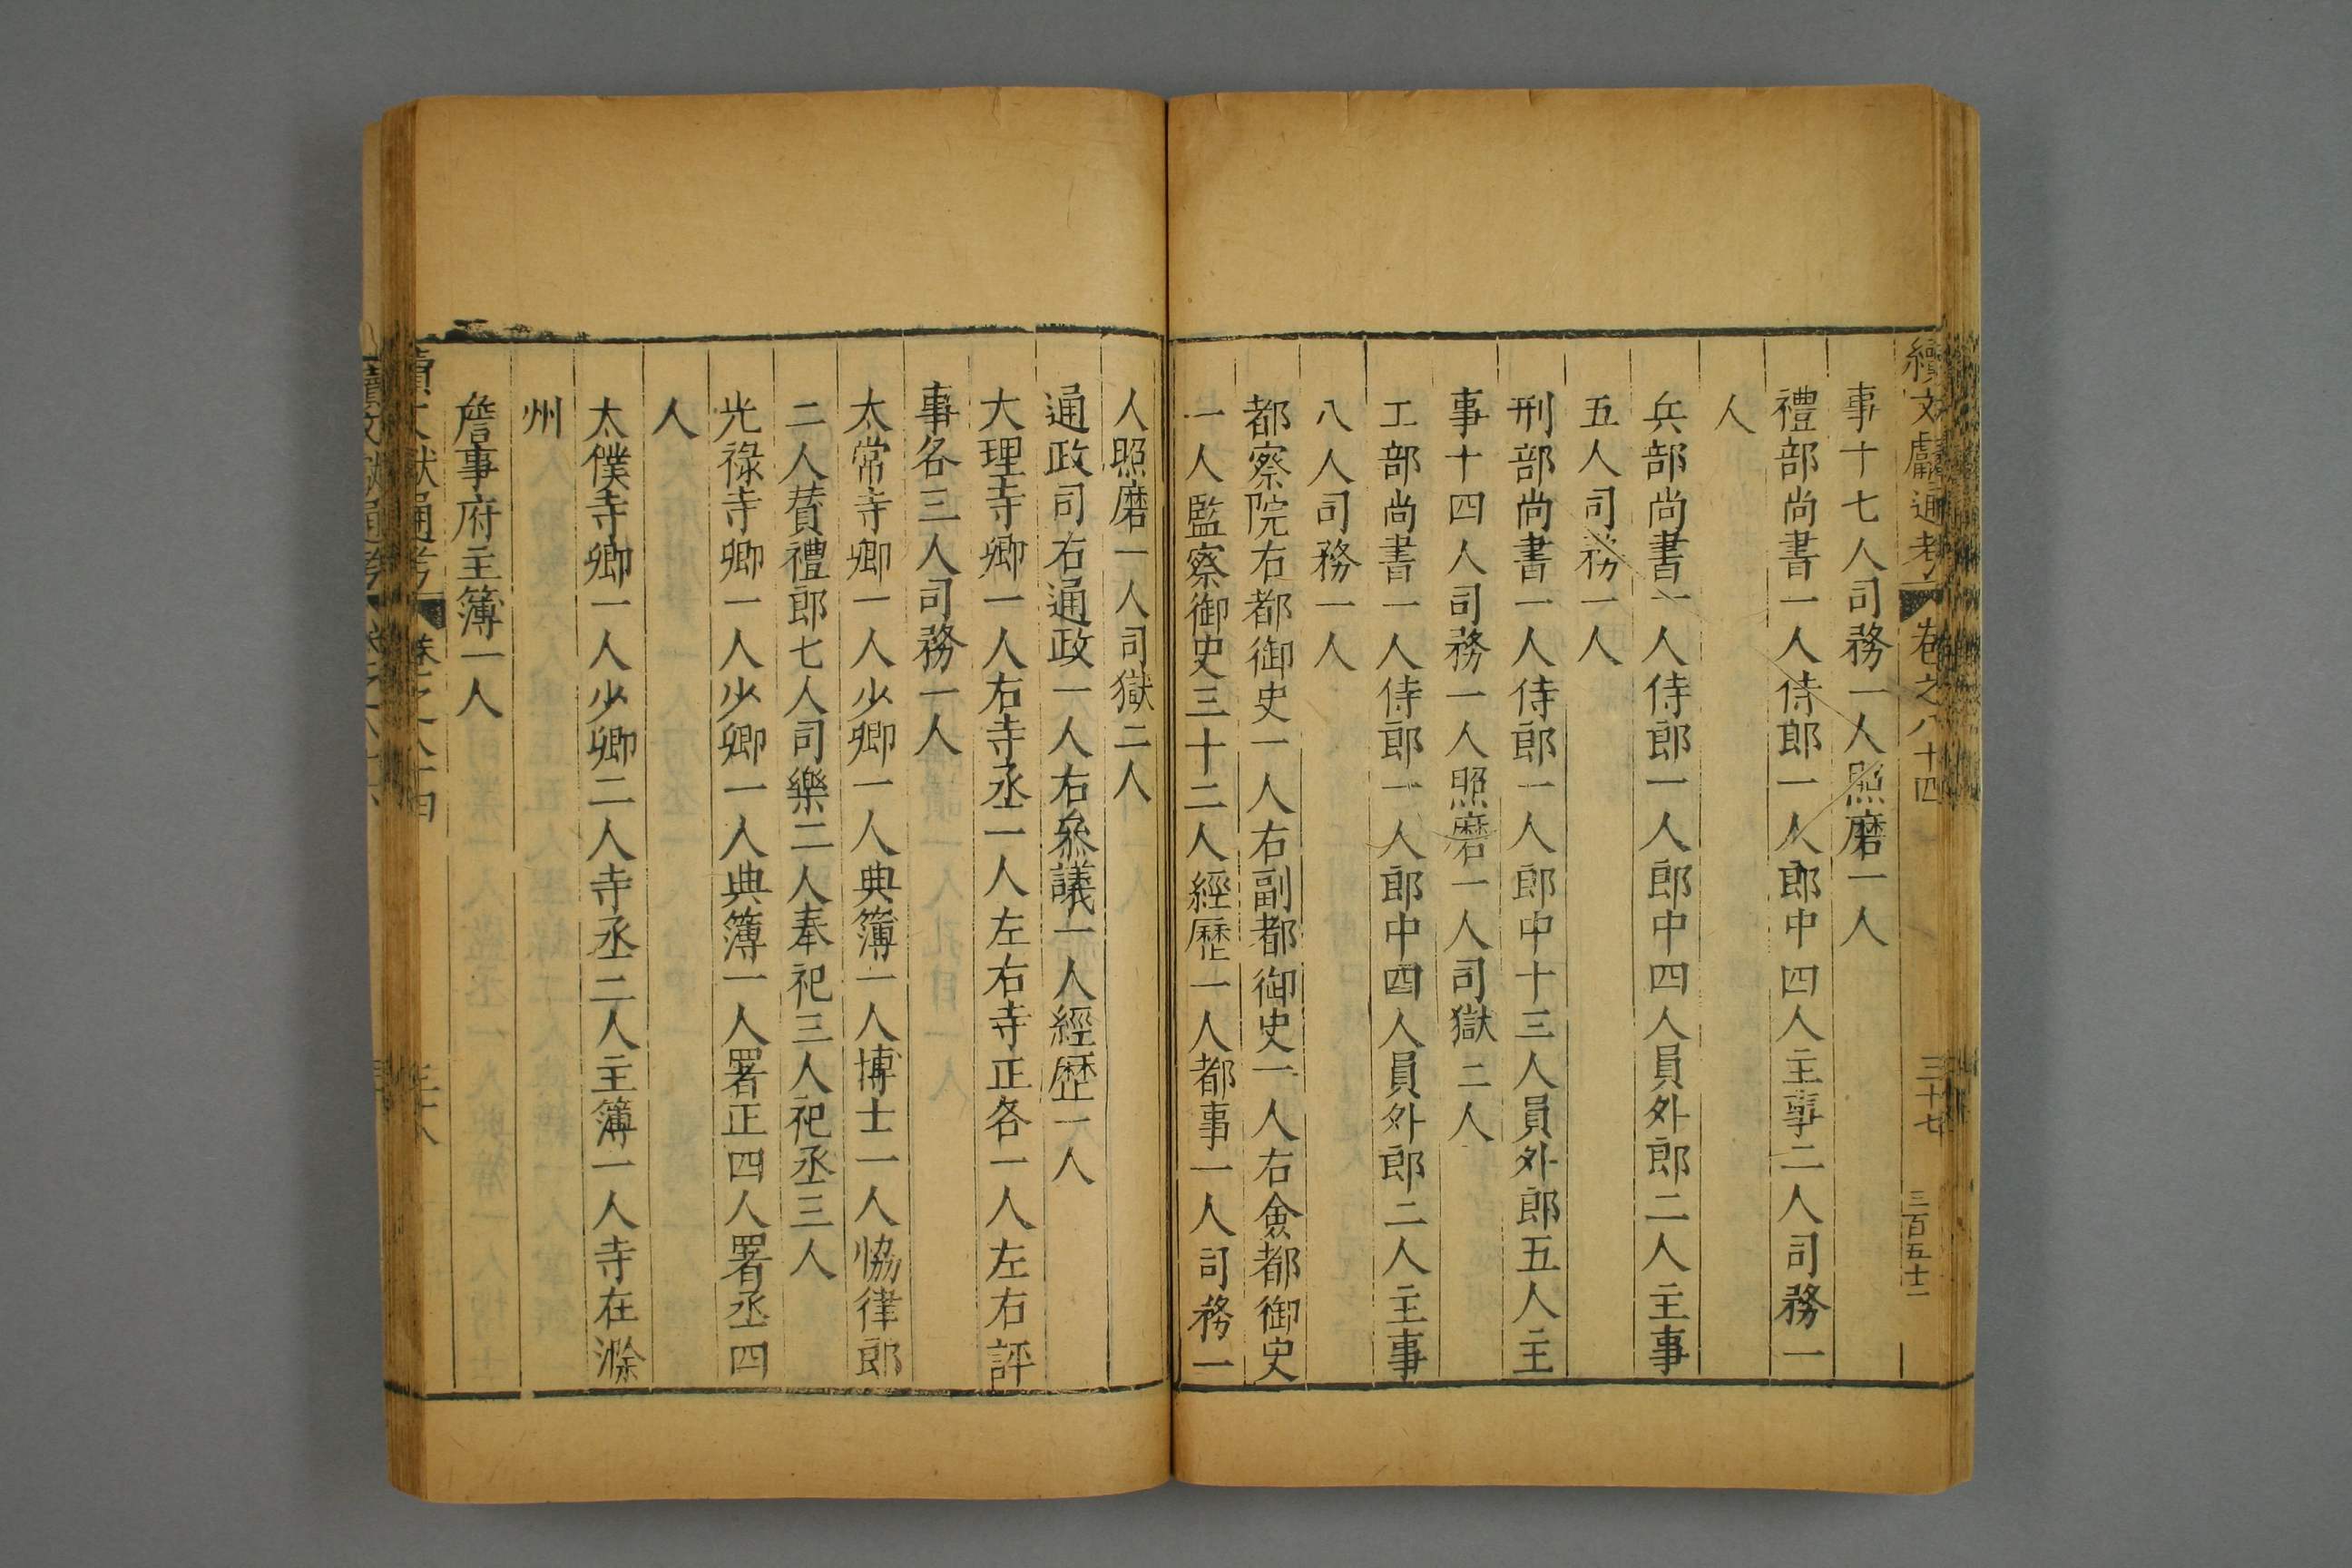 續文獻通考 卷之八十四 三十七 三百五十二
事十七人司務一人照磨一人
禮部尚書一人侍郎一人郎中四人主事二人司務一
人
兵部尚書一人侍郎一人郎中四人員外郎二人主事
五人司務一人
刑部尚書一人侍郎一人郎中十三人員外郎五人主
事十四人司務一人照磨一人司獄二人
工部尚書一人侍郎一人郎中四人員外郎二人主事
八人司務一人
都察院右都御史一人右副都御史一人右僉都御史
一人監察御史三十二人經歷一人都事一人司務一
人照磨一人司獄二人
通政司右通政一人右叅議一人經歷一人
大理寺卿一人右寺丞一人左右寺正各一人左右評
事各三人司務一人
太常寺卿一人少卿一人典簿一人博士一人恊律郎
二人賛禮郎七人司樂二人奉祀三人祀丞三人
光祿寺卿一人少卿一人典簿一人署正四人署丞四
人
太僕寺卿一人少卿二人寺丞二人主簿一人寺在滁
州
詹事府主簿一人